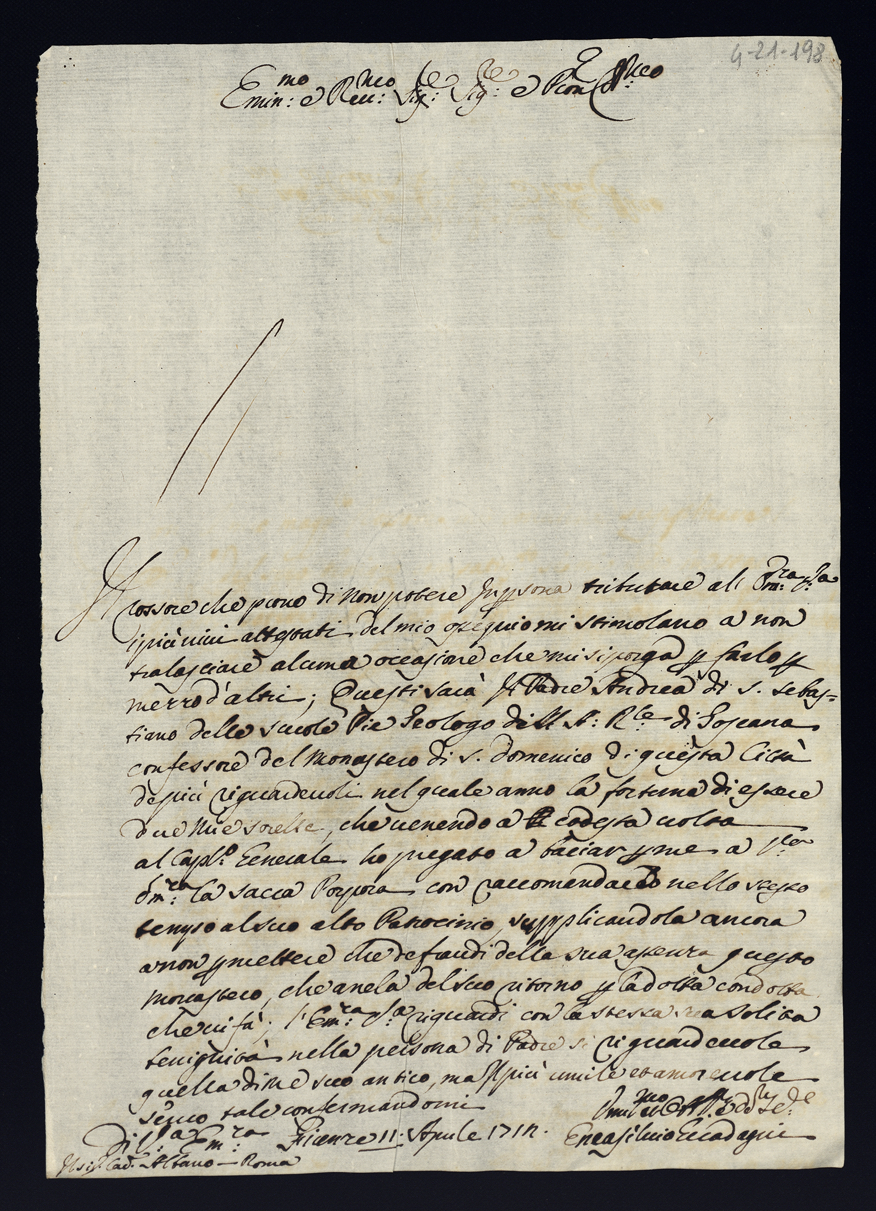 4-21-198
Emin:mo e Reu:mo Sig:re Sig:re e Pron
Il
rossore che prouo di non potere in persona tributare all Em:za Va
i più uiui attestati del mio ossequio mi stimolano a non
tralasciare alcuna occasione che mi si porga p farlo p
mezzo d'altri; Questi sarà Il Padre Andrea di S. Sebas-
tiano delle scuole Pie Teologo dell A: Rle di Toscana
confessore del Monastero di S. Domenico di questa Città
de più riguardeuoli nel quale anno la fortuna di essere
due mie sorelle, che uenendo a codesta uolta
al Caplo Generale ho pregato a baciar p me a
Em:za la sacra Porpora con raccomandarlo nello stesso
tempo al suo alto Patrocinio, supplicandola ancora
a non pmettere che defraudi della sua assenza questo
Monastero, che anela del suo ritorno p la dotta condotta
che ui fà; l'Em:za Va riguardi con la stessa sua solita
benignità nella persona di Padre sì riguardeuole
quella di me suo antico, ma più umile et amoreuole
seruo tale confermandomi
Di Va Em:za Firenze 11: Aprile 1712.
Enea Siluio
Il sig. Card. Albano Roma